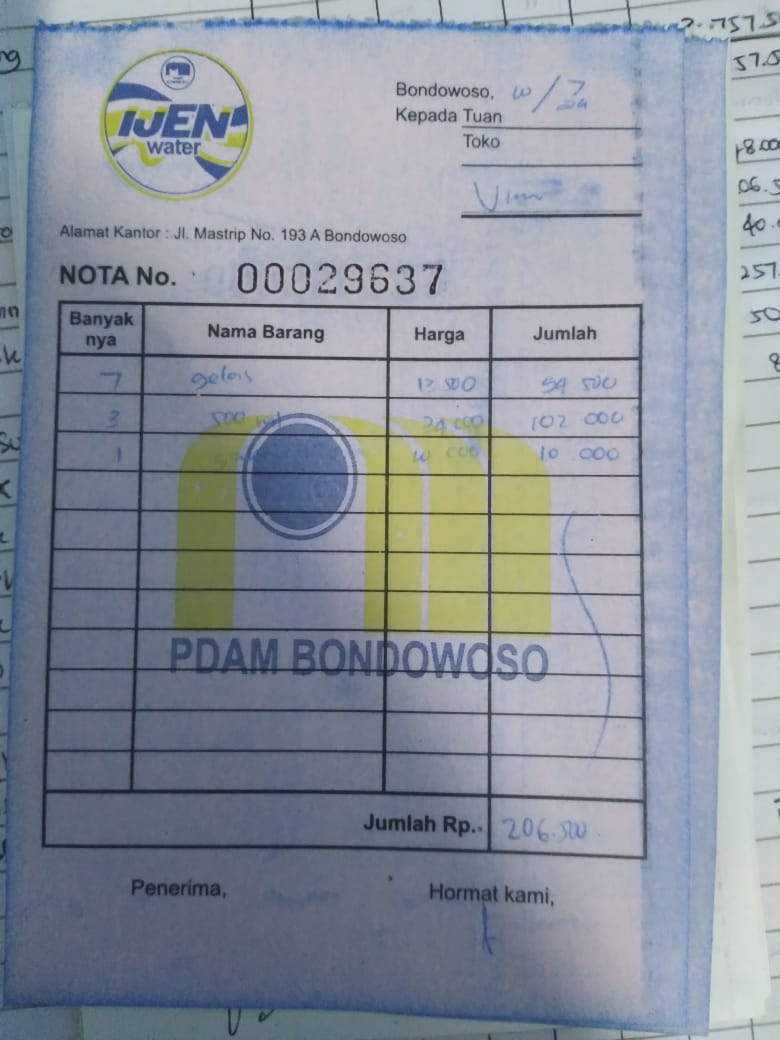 IJEN
water
Bondowoso, 10/7
Kepada Tuan
Toko
Alamat Kantor : Jl. Mastrip No. 193 A Bondowoso
NOTA No. 00029637
Banyak nya Nama Barang Harga Jumlah
7 gelas 13 500 94 500
3 500 ml 34 000 102 000
1 10 000 10 000
PDAM BONDOWOSO
Jumlah Rp. 206.500
Penerima, Hormat kami,